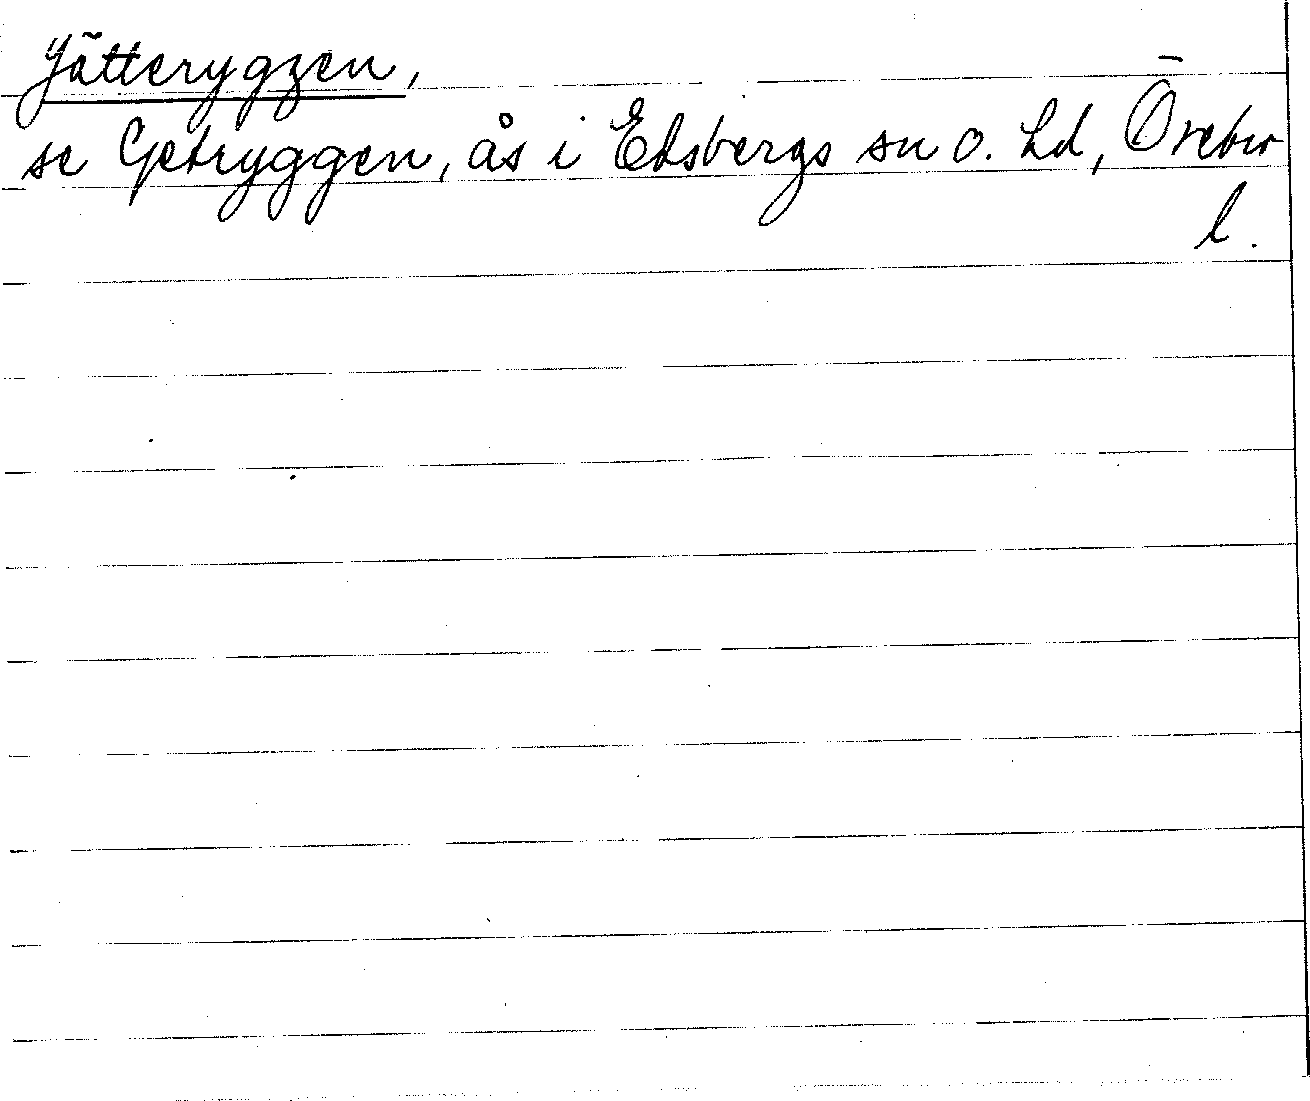 Jätteryggen,
se Getryggen, ås i Edsbergs sn o. hd, Örebro
l.